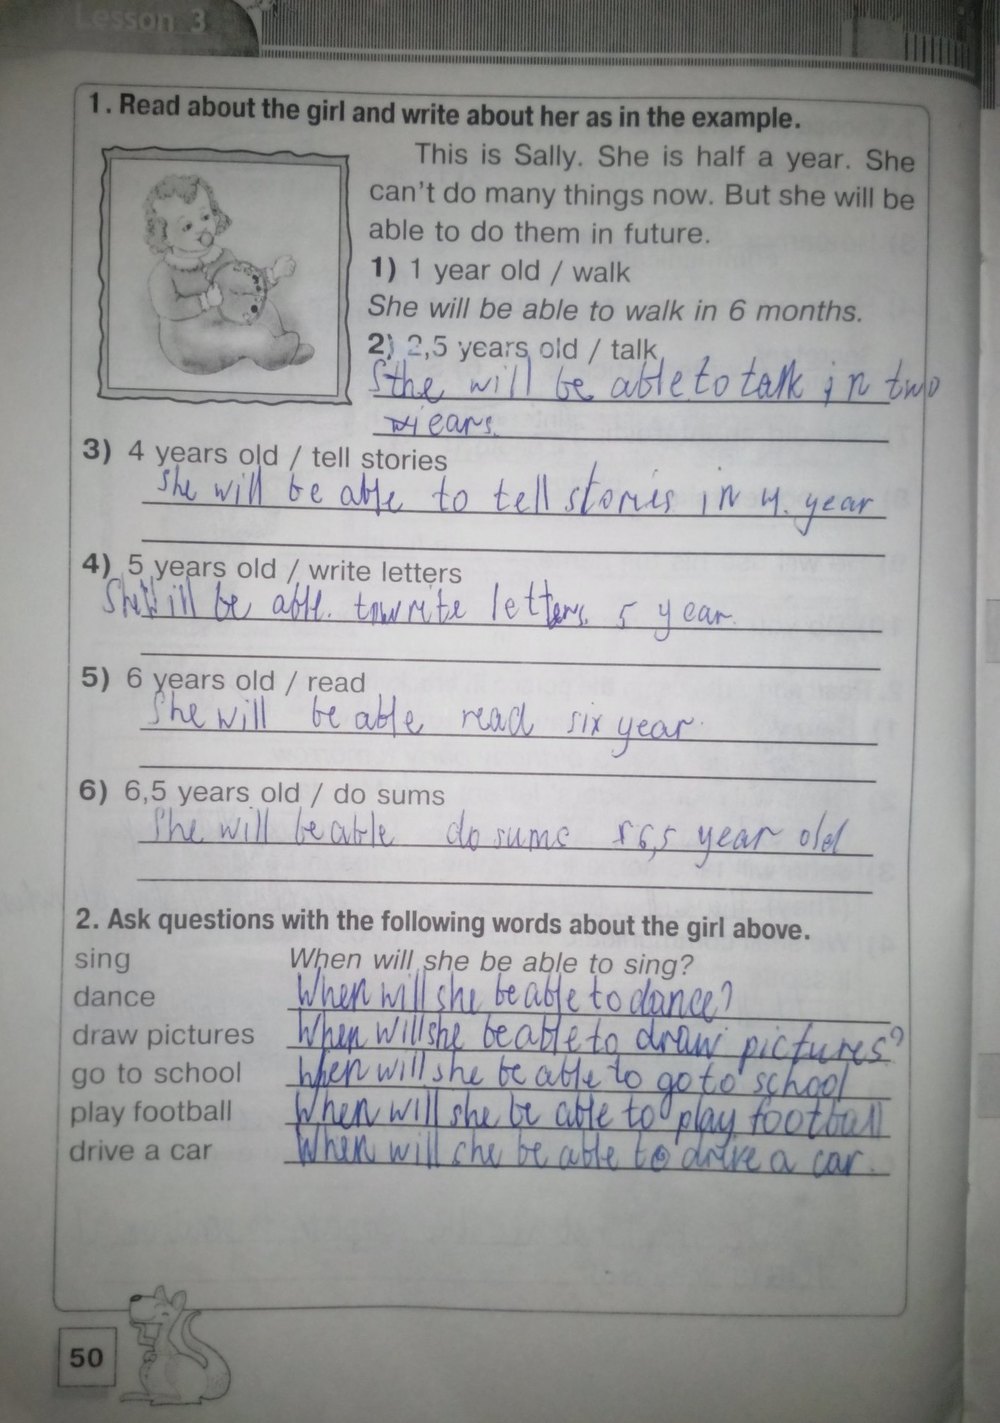 Lesson 3
1. Read about the girl and write about her as in the example.
This is Sally. She is half a year. She
can't do many things now. But she will be
able to do them in future.
1) 1 year old / walk
She will be able to walk in 6 months.
2) 2,5 years old / talk
Sthe will be able to talk in two
years.
3) 4 years old / tell stories
She will be able to tell stories in 4. year
4) 5 years old / write letters
She will be able. to write letters. 5 year.
5) 6 years old / read
She will be able read six year.
6) 6,5 years old / do sums
She will be able do sums 6,5 year old
2. Ask questions with the following words about the girl above.
sing When will she be able to sing?
dance When will she be able to dance?
draw pictures When will she be able to draw pictures?
go to school When will she be able to go to school
play football When will she be able to play football
drive a car When will she be able to drive a car.
50